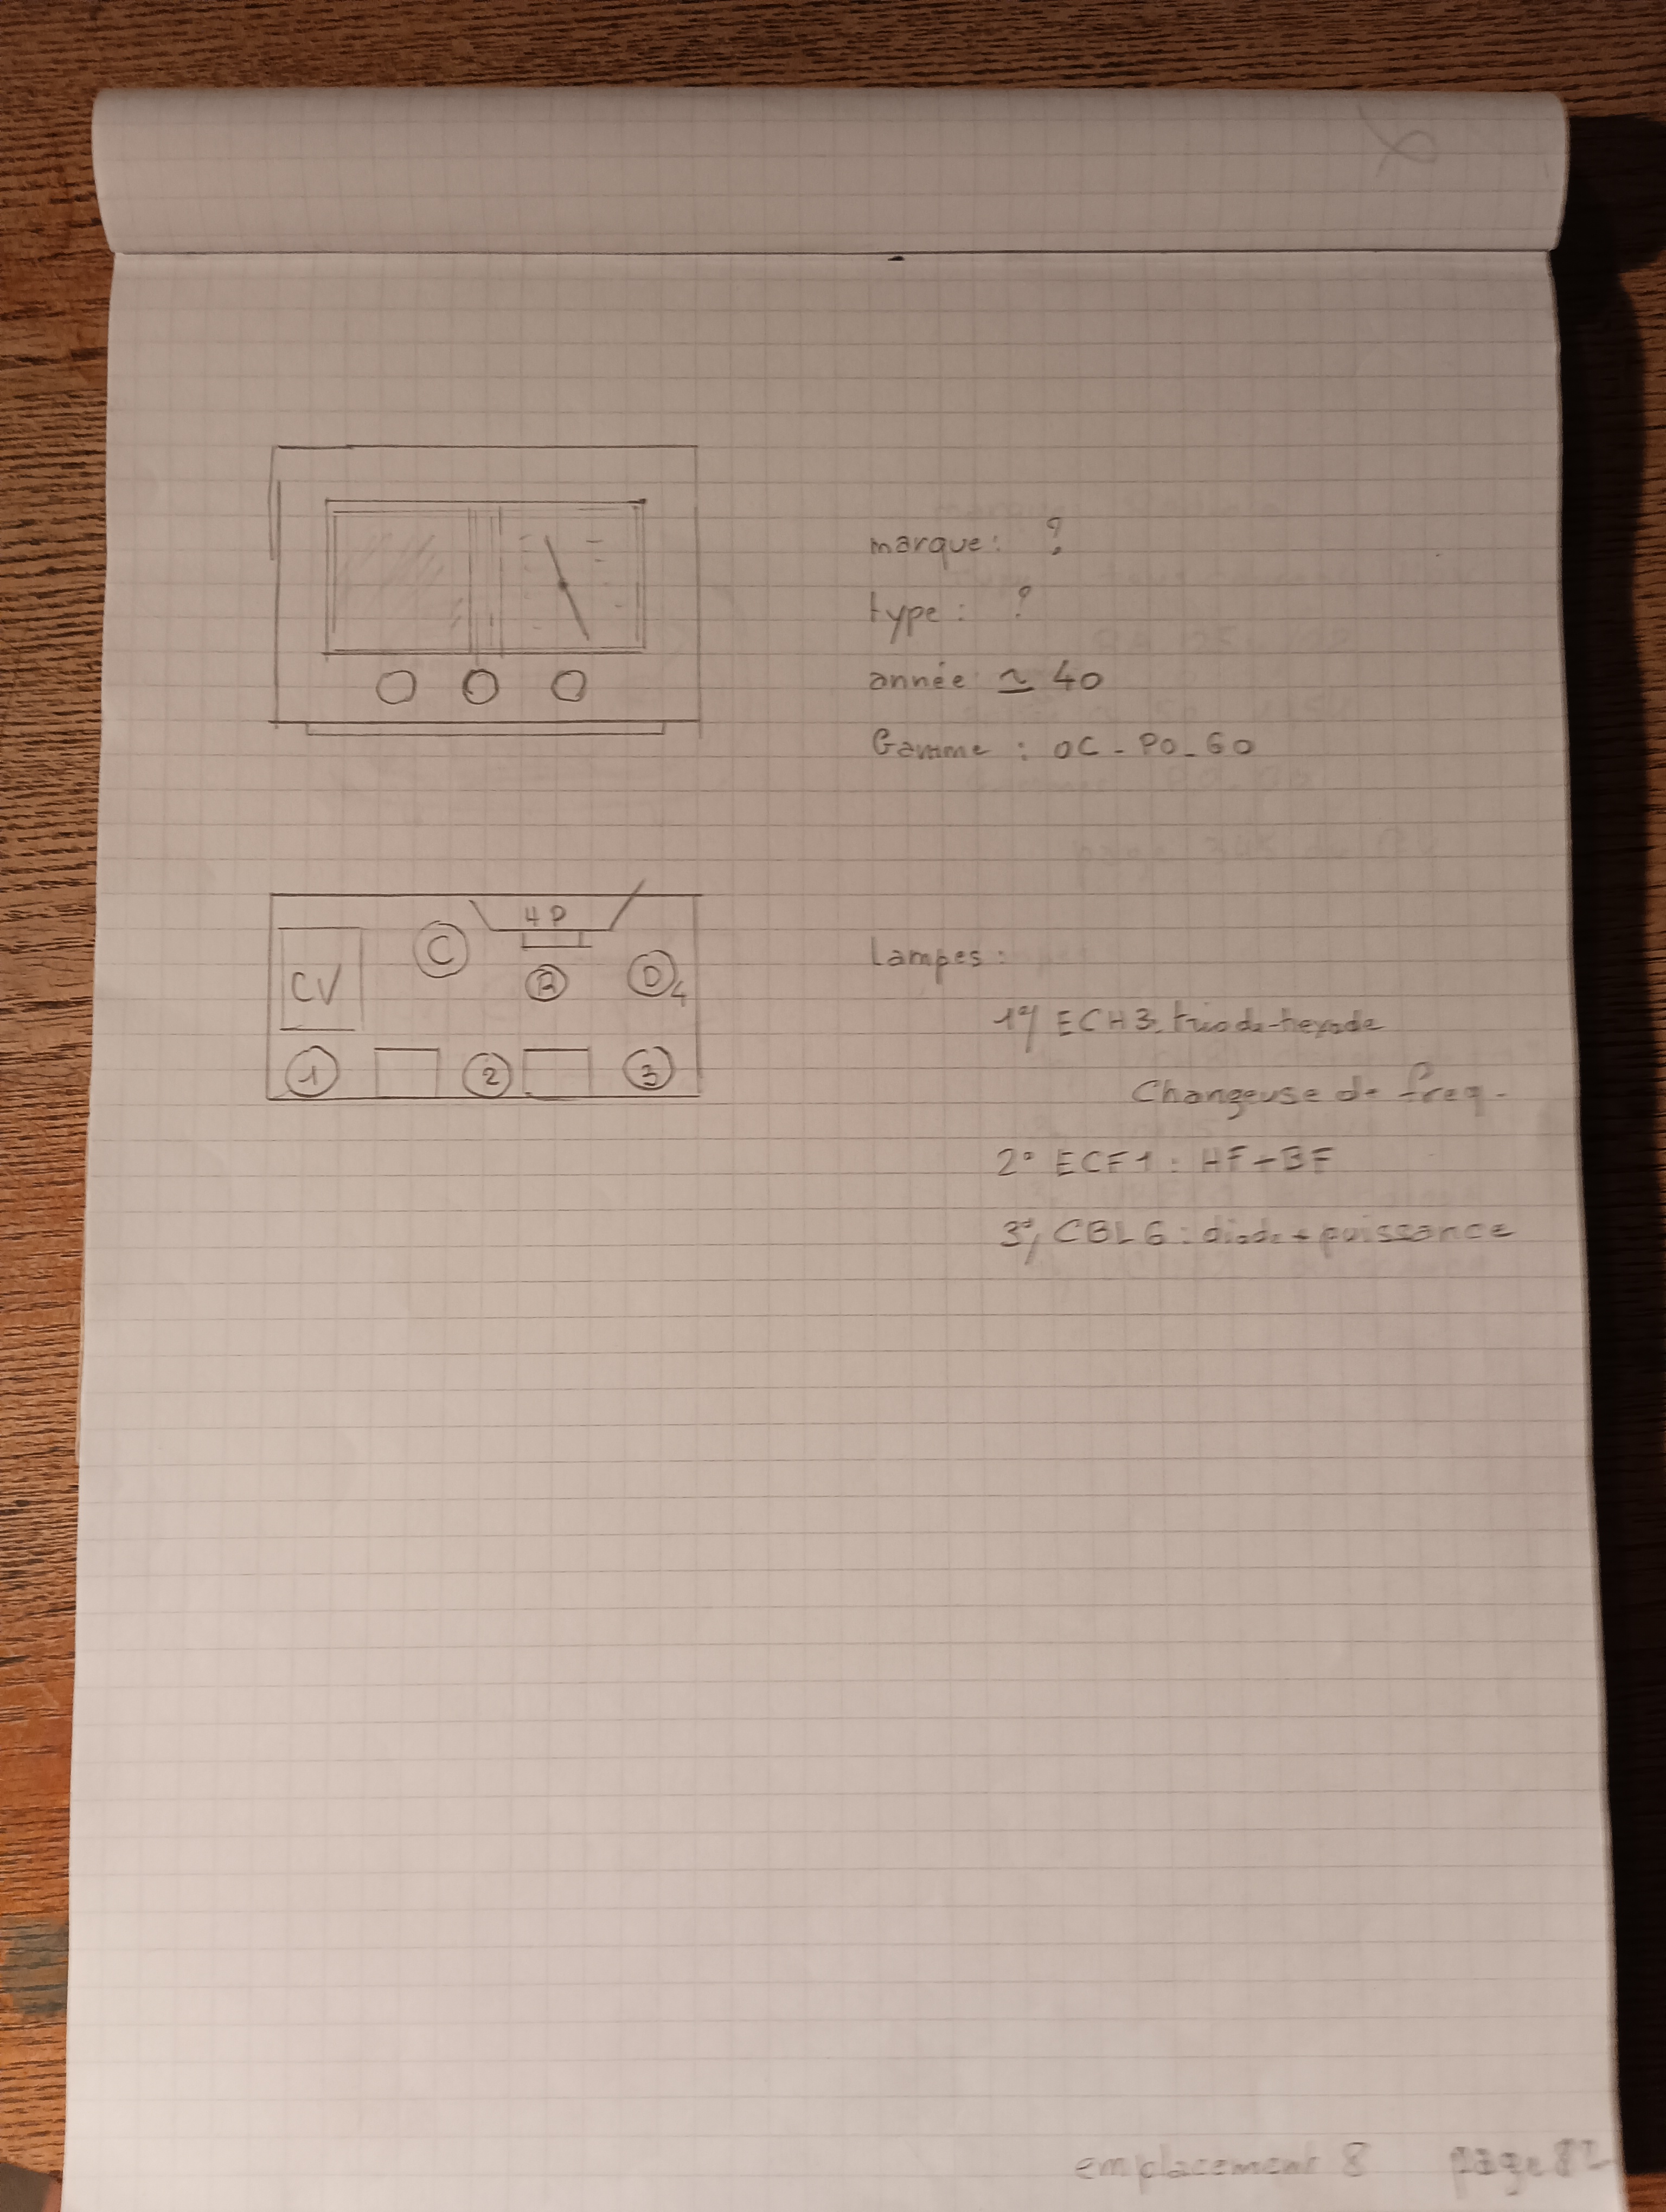 marque: ?
type : ?
année ≃ 40
Gamme : OC - PO - GO
HP
C
CV
R
D 4
1
2
3
Lampes :
1°/ ECH3. triode-hexode
Changeuse de freq.
2° ECF1 : HF+BF
3°/ CBL6 : diode + puissance
emplacement 8 page 82